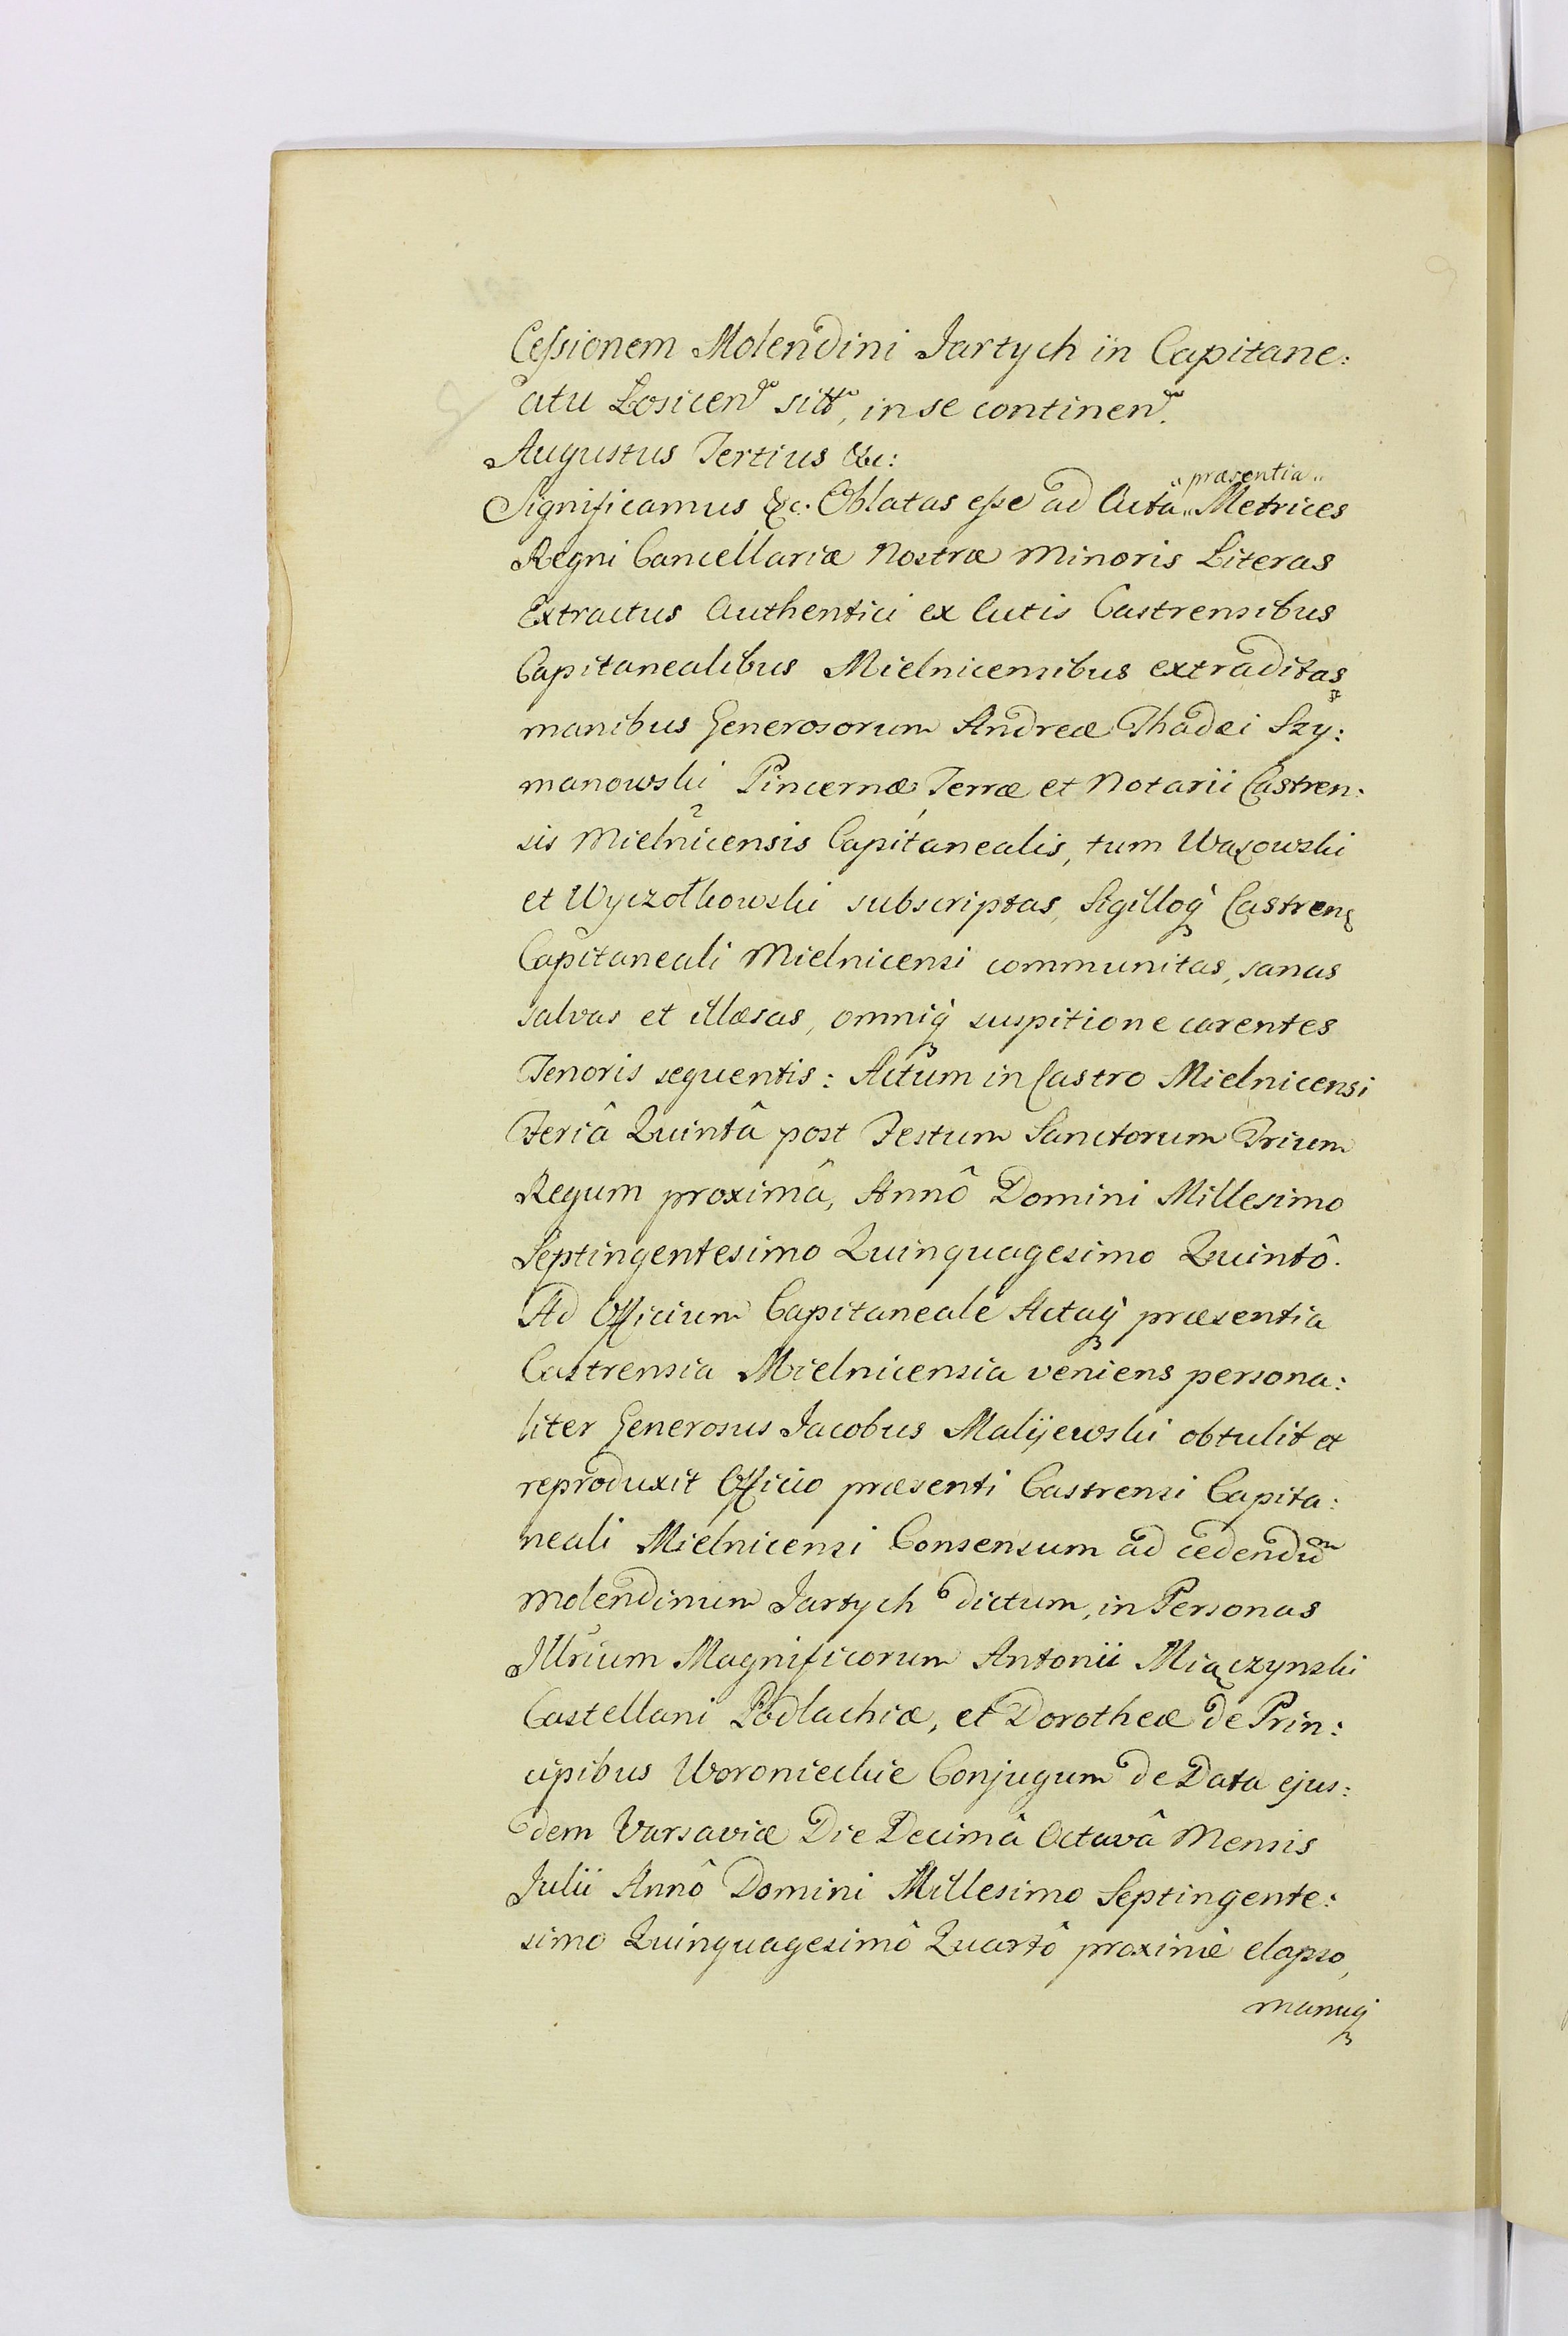 Cessionem Molendini Jartych in Capitane:
atu Łosicen sitt, in se continen.
Augustus Tertius &c:
Significamus &c. Oblatas esse ad Acta „præsentia„ Metrices
Regni Cancellariæ Nostræ Minoris Literas
Extractus Authentici ex Actis Castrensibus
Capitanealibus Mielnicensibus extraditas,
manibus Generosorum Andreæ Thadæi Szy:
manowski Pincernæ Terræ et Notarii Castren:
sis Mielnicensis Capitanealis, tum Wasowski
et Wyczołkowski subscriptas, Sigilloq Castren
Capitaneali Mielnicensi communitas, sanas
salvas et illæsas, omniq suspitione carentes
Tenoris sequentis: Actum in Castro Mielnicensi
Feriâ Quintâ post Festum Sanctorum Trium
Regum proximâ, Annô Domini Millesimo
Septingentesimo Quinquagesimo Quintô.
Ad Officium Capitaneale Actaq præsentia
Castrensia Mielnicensia veniens persona:
liter Generosus Jacobus Malijewski obtulit et
reproduxit Officio præsenti Castrensi Capita:
neali Mielnicensi Consensum ad cedendum
Molendinum Jartych dictum, in Personas
Illrium Magnificorum Antonii Miączynski
Castellani Podlachiæ, et Dorotheæ de Prin:
cipibus Woronieckie Conjugum de Data ejus:
dem Varsaviæ Die Decimâ Octavâ Mensis
Julii Annô Domini Millesimo Septingente:
simo Quinquagesimô Quartô proximè elapso,
manuq